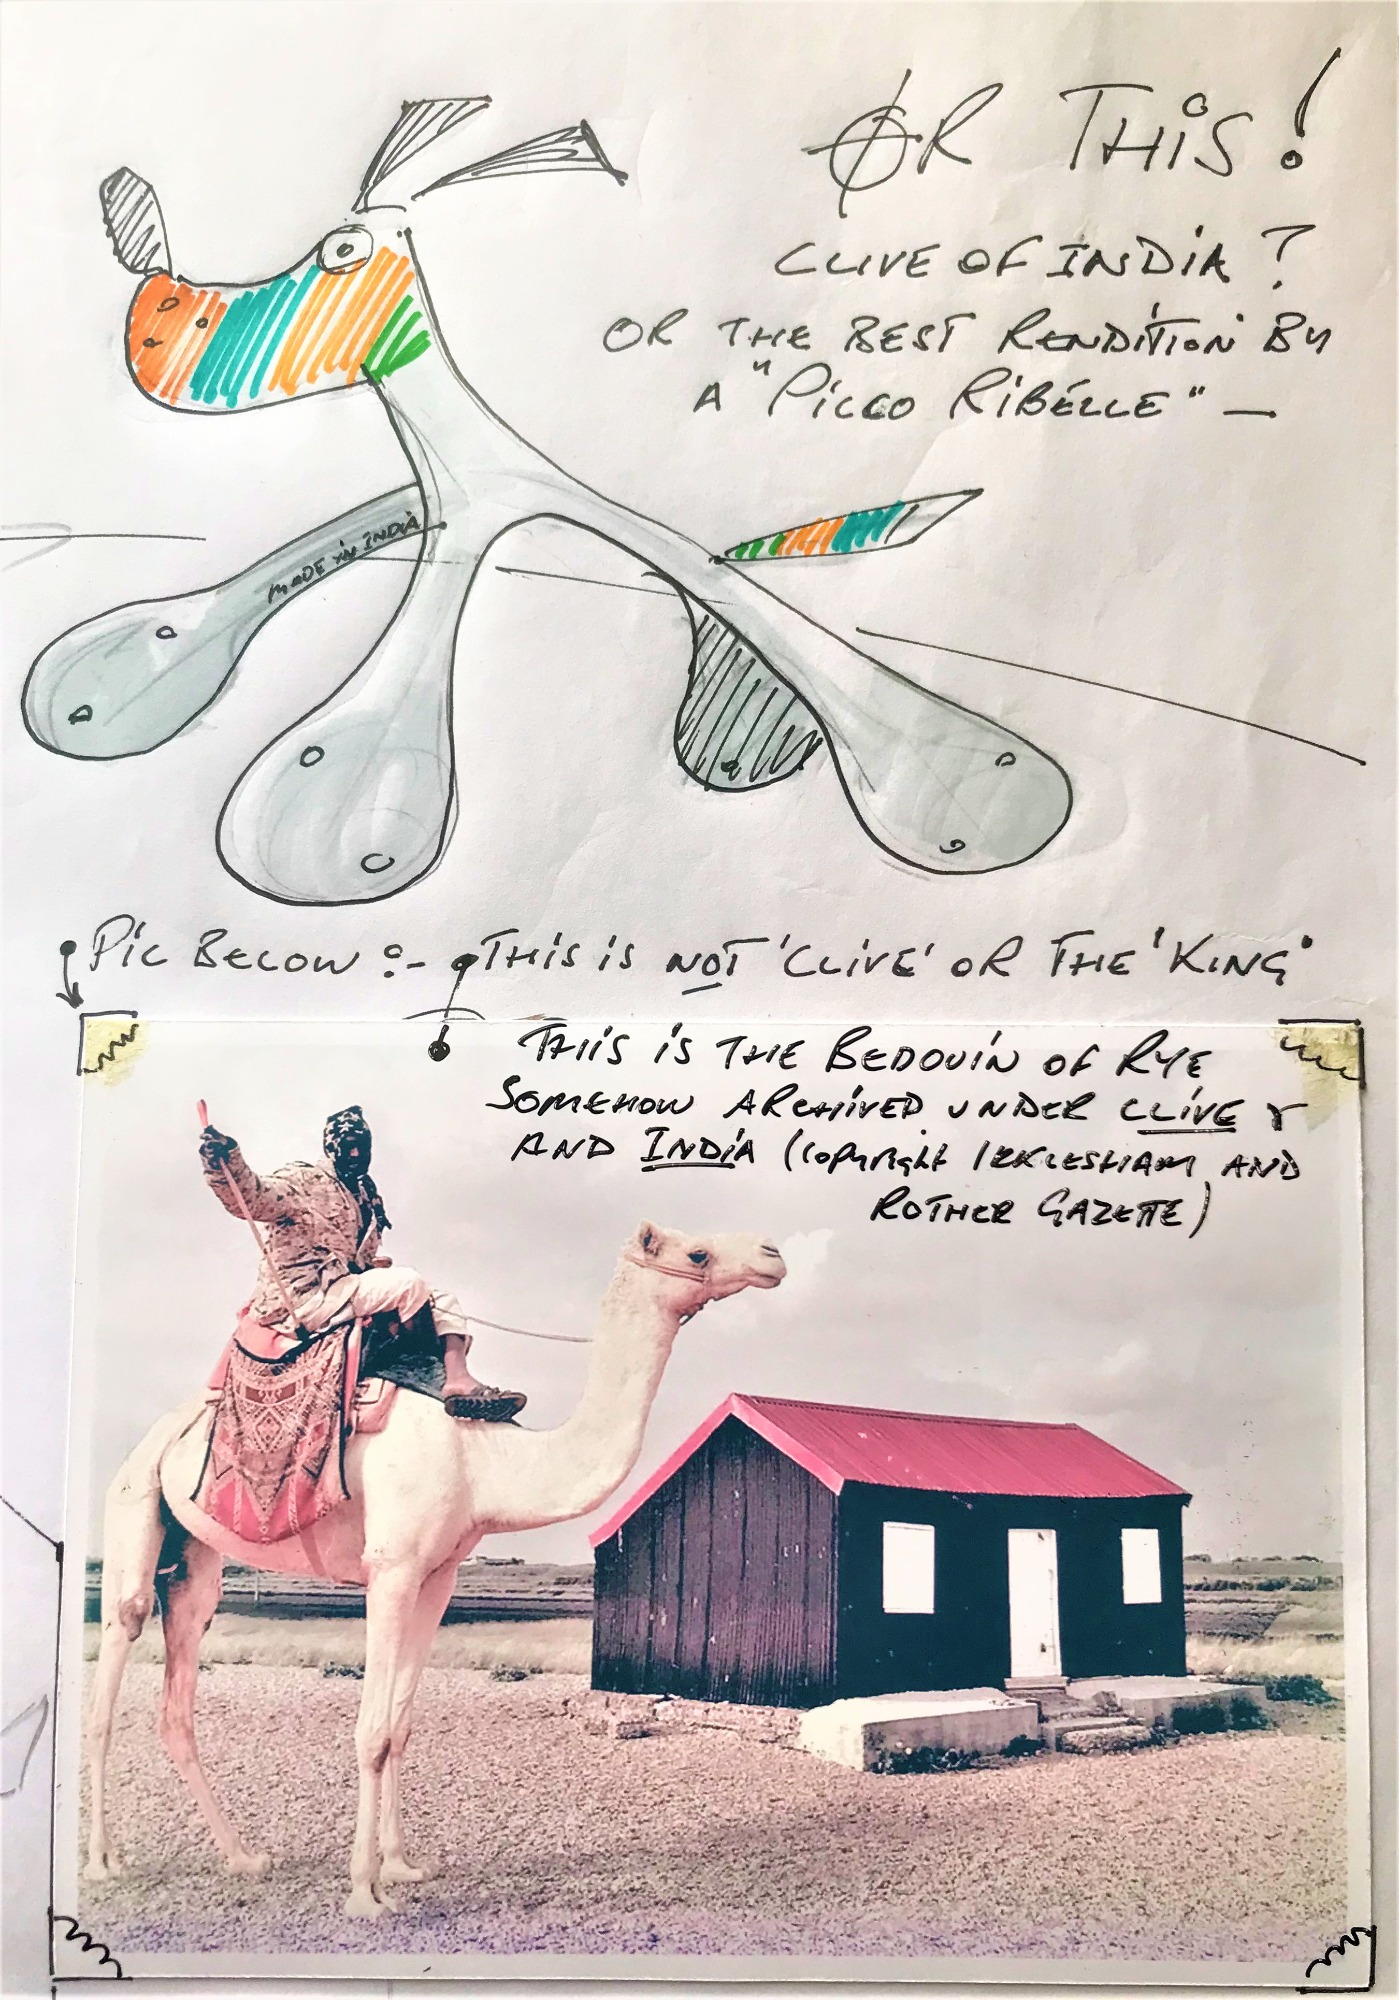 OR THIS!
CLIVE OF INDIA?
OR THE BEST RENDITION BY
A "PICCO RIBÉLLE" —
MADE IN INDIA
PIC BELOW :- THIS IS NOT 'CLIVE' OR THE 'KING'
THIS IS THE BEDOUIN OF RYE
SOMEHOW ARCHIVED UNDER CLIVE
AND INDIA (Copyright ICKLESHAM AND
ROTHER GAZETTE)